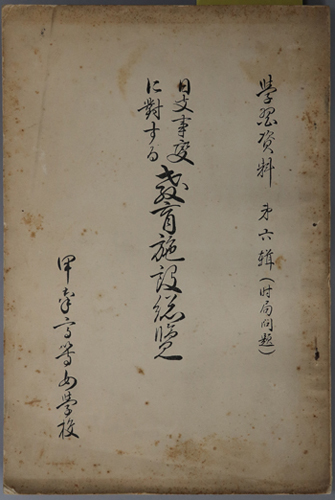 學習資料 第六輯(時局問題)
日支事變
に對する
教育施設総覽
甲府高等女學校